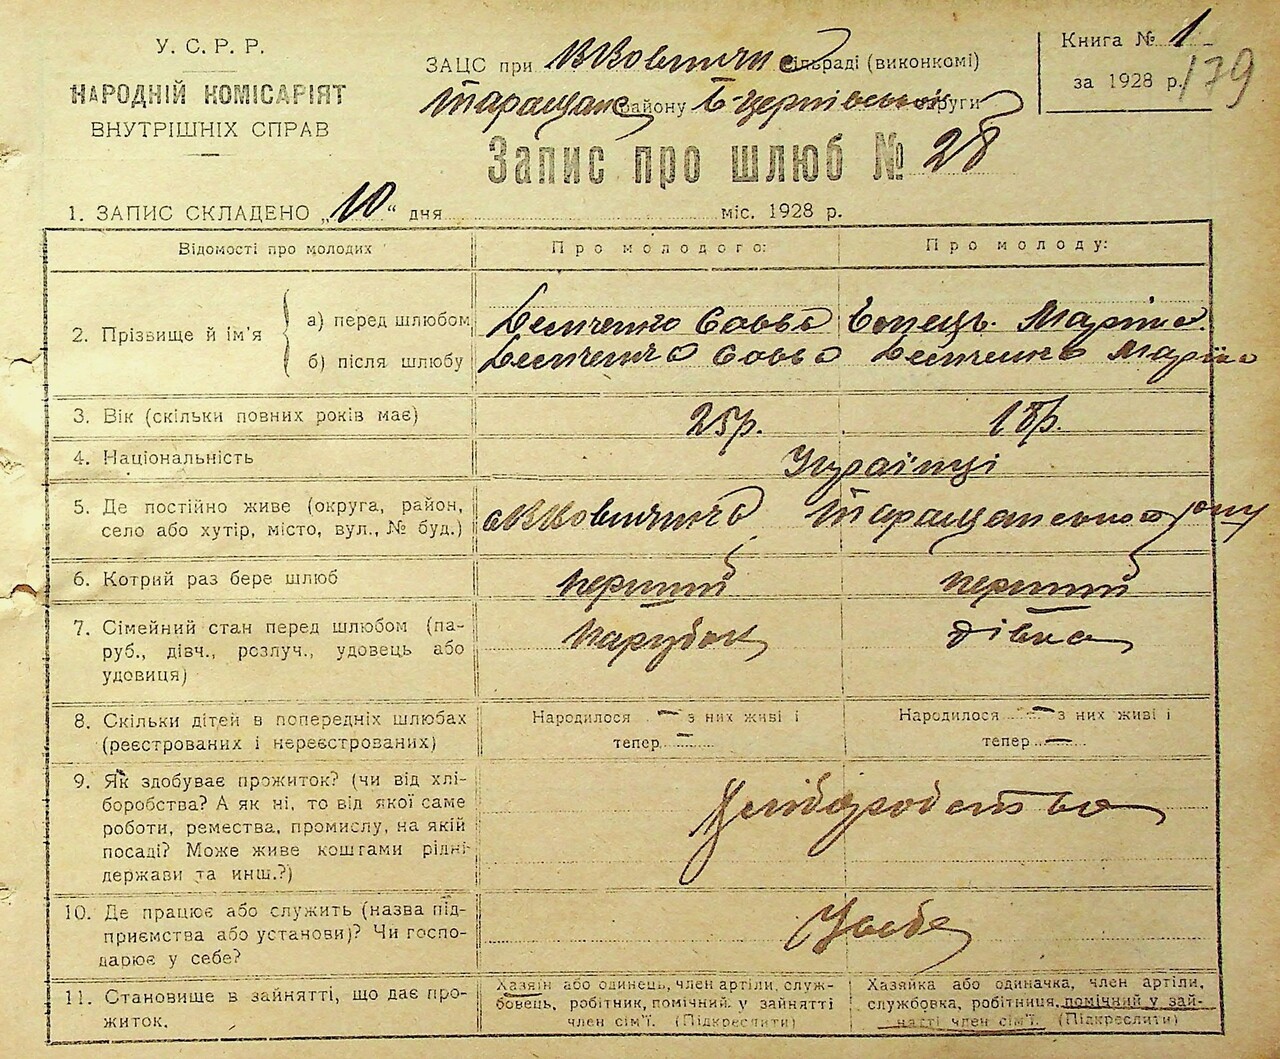 У. С. Р. Р.
НАРОДНІЙ КОМІСАРІЯТ
ВНУТРІШНІХ СПРАВ
ЗАЦС при сільраді (виконкомі)
району округи
Книга № 1
за 1928 р. 179
Запис про шлюб № 28
1. ЗАПИС СКЛАДЕНО „10“ дня міс. 1928 р.
Відомості про молодих
Про молодого:
Про молоду:
2. Прізвище й ім'я
а) перед шлюбом
Демченко Савва
Марія
б) після шлюбу
Демченко Савва
Демченко Марія
3. Вік (скільки повних років має)
25р.
18р.
4. Національність
Українці
5. Де постійно живе (округа, район,
село або хутір, місто, вул., № буд.)
Таращанського
6. Котрий раз бере шлюб
перший
перший
7. Сімейний стан перед шлюбом (па-
руб., дівч., розлуч., удовець або
удовиця)
парубок
дівка
8. Скільки дітей в попередніх шлюбах
(реєстрованих і нереєстрованих)
Народилося — з них живі і
тепер —
Народилося — з них живі і
тепер —
9. Як здобуває прожиток? (чи від хлі-
боробства? А як ні, то від якої саме
роботи, ремества, промислу, на якій
посаді? Може живе коштами рідні
держави та инш.?)
Хліборобства
10. Де працює або служить (назва під-
приємства або установи)? Чи госпо-
дарює у себе?
У себе
11. Становище в зайнятті, що дає про-
житок.
Хазяїн або одинець, член артіли, служ-
бовець, робітник, помічний. у зайнятті
член сім'ї. (Підкреслити)
Хазяйка або одиначка, член артіли,
службовка, робітниця, помічний у зай-
нятті член сім'ї. (Підкреслити)